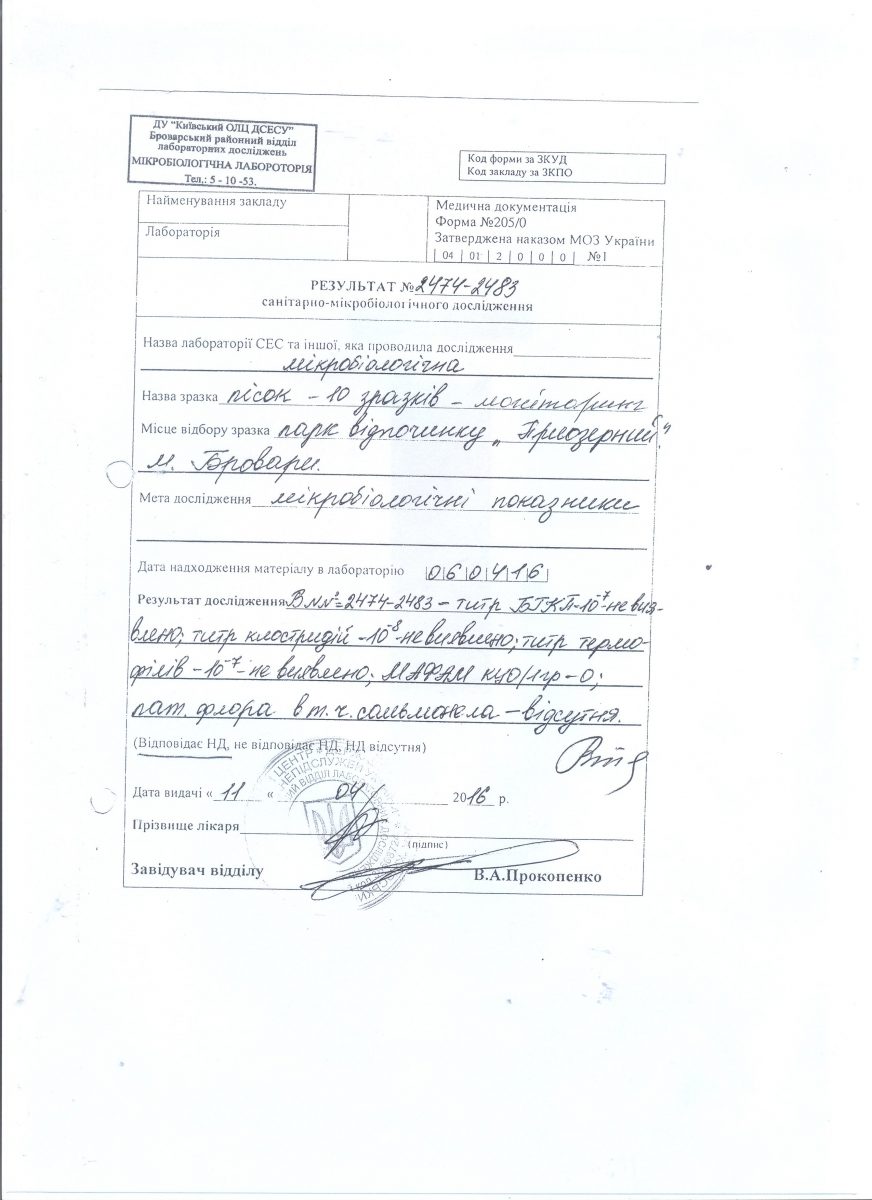 ДУ "Київський ОЛЦ ДСЕСУ"
Броварський районний відділ
лабораторних досліджень
МІКРОБІОЛОГІЧНА ЛАБОРОТОРІЯ
Тел.: 5 - 10 -53.
Код форми за ЗКУД
Код закладу за ЗКПО
Найменування закладу
Лабораторія
Медична документація
Форма №205/0
Затверджена наказом МОЗ України
04 01 2 0 0 0 №1
РЕЗУЛЬТАТ № 2474-2483
санітарно-мікробіологічного дослідження
Назва лабораторії СЕС та іншої, яка проводила дослідження
мікробіологічна
Назва зразка пісок - 10 зразків - моніторинг
Місце відбору зразка парк відпочинку „Приозерний"
м. Бровари.
Мета дослідження мікробіологічні показники
Дата надходження матеріалу в лабораторію 0 6 0 4 1 6
Результат дослідження В №№=2474-2483 - титр БГКП-10⁻⁷-не вия-
влено; титр клостридій -10⁻⁸-не виявлено; титр термо-
філів -10⁻⁷- не виявлено; МАФАМ КУО/1гр - 0;
пат. флора в т. ч. сальмонела - відсутня.
(Відповідає НД, не відповідає НД, НД відсутня)
Дата видачі « 11 « 04 2016 р.
Прізвище лікаря
(підпис)
Завідувач відділу В.А.Прокопенко